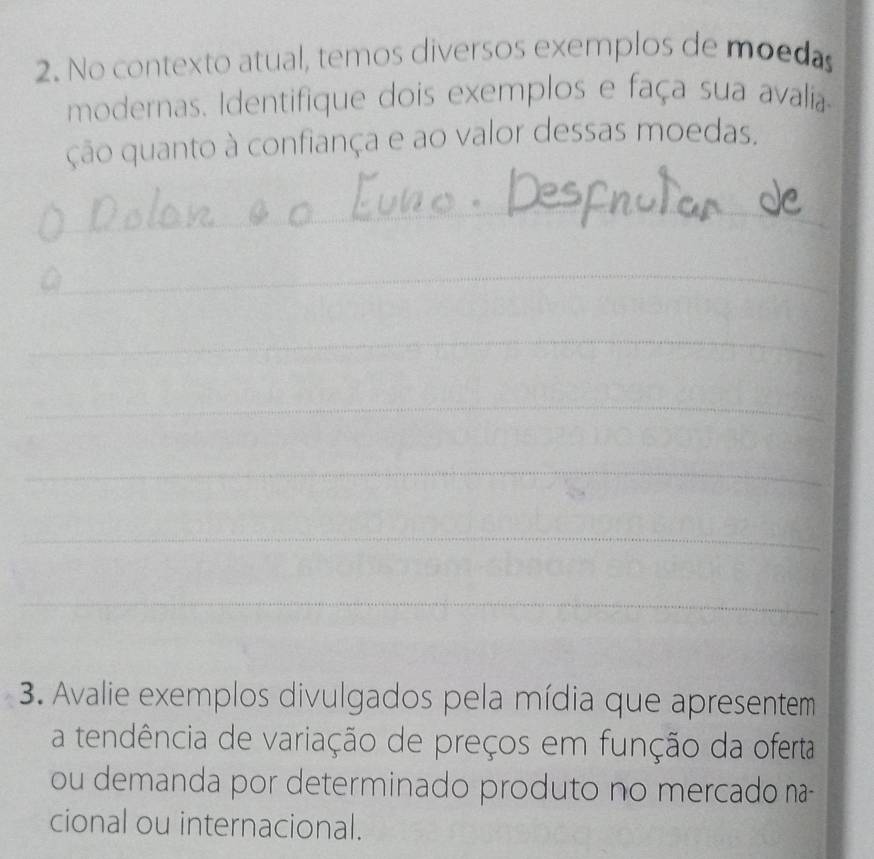 2. No contexto atual, temos diversos exemplos de moedas
modernas. Identifique dois exemplos e faça sua avalia-
ção quanto à confiança e ao valor dessas moedas.
O Dolar e o Euro. Desfrutar de
a
3. Avalie exemplos divulgados pela mídia que apresentem
a tendência de variação de preços em função da oferta
ou demanda por determinado produto no mercado na-
cional ou internacional.